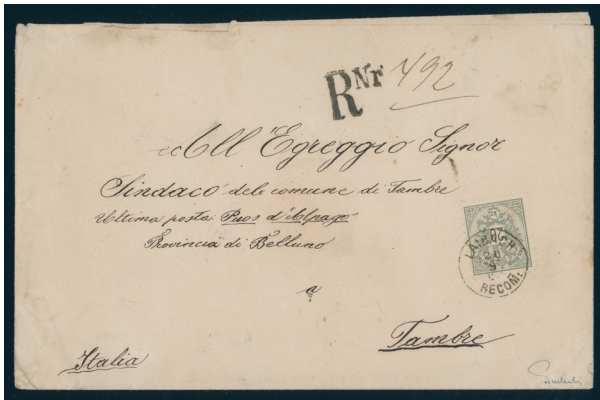 R Nr 492
All Egreggio Signor
Sindaco dele comune di Tambre
Ultima posta Puos d'Alpago
Provincia di Belluno
a
Tambre
Italia
RECOM.